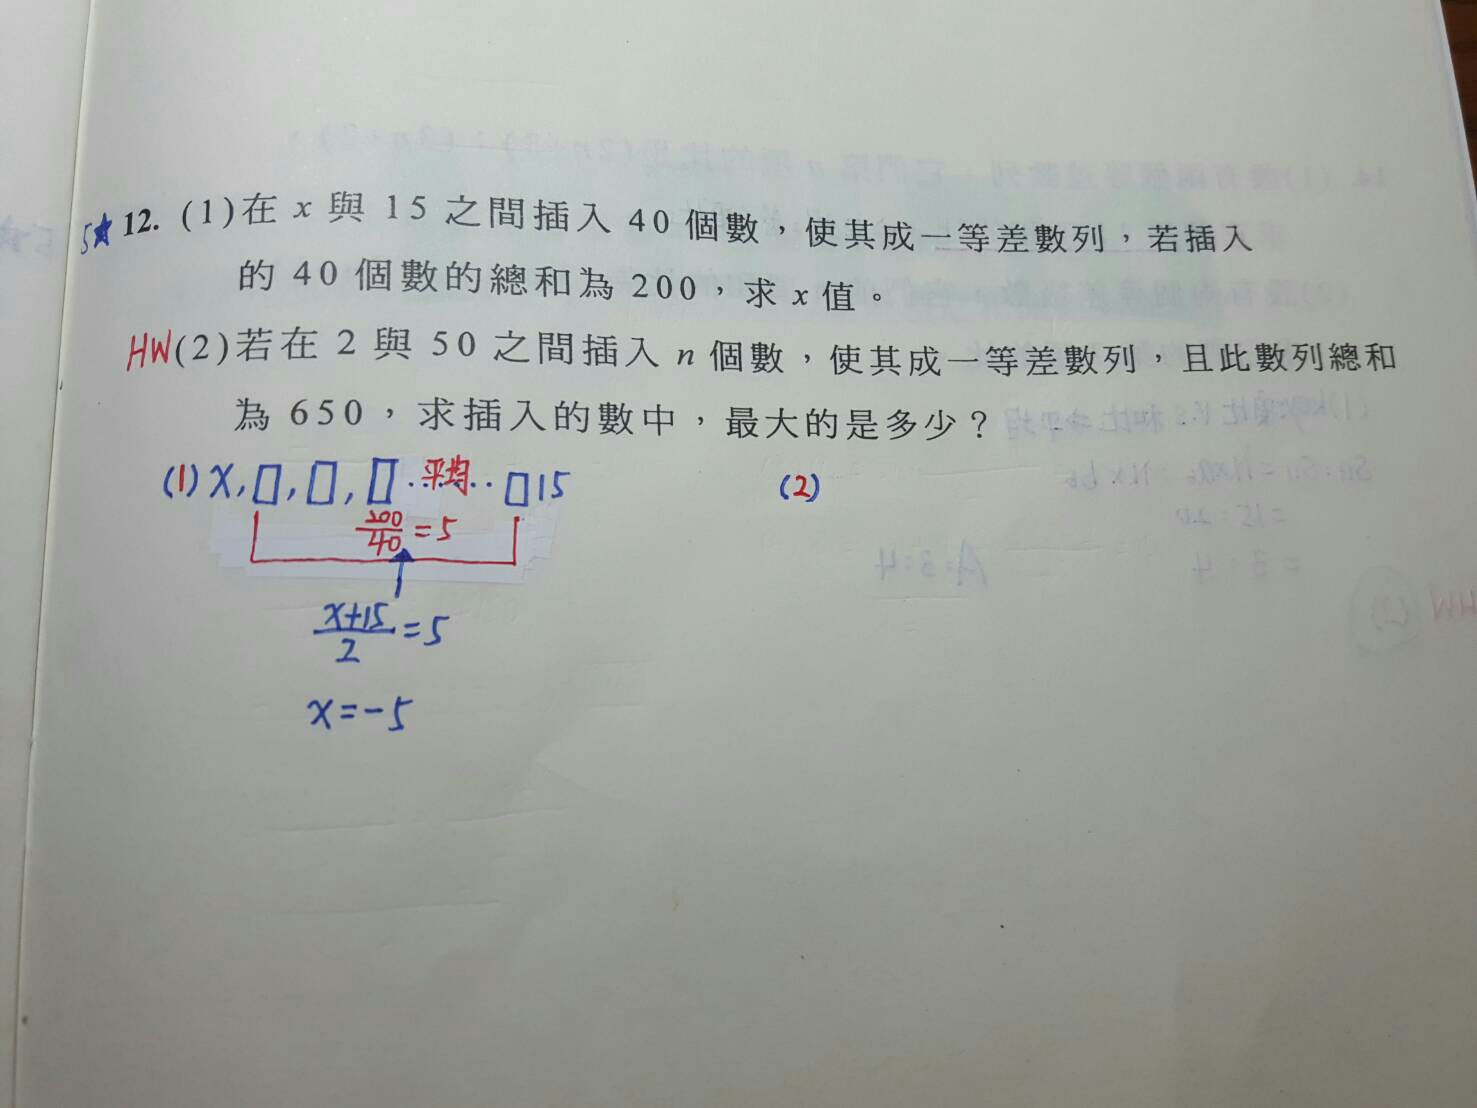 5★12. (1)在 x 與 15 之間插入 40 個數，使其成一等差數列，若插入
的 40 個數的總和為 200，求 x 值。
HW(2)若在 2 與 50 之間插入 n 個數，使其成一等差數列，且此數列總和
為 650，求插入的數中，最大的是多少？
(1) x, □, □, □ ..平均.. □ 15
200/40 = 5
(x+15)/2 = 5
x = -5
(2)